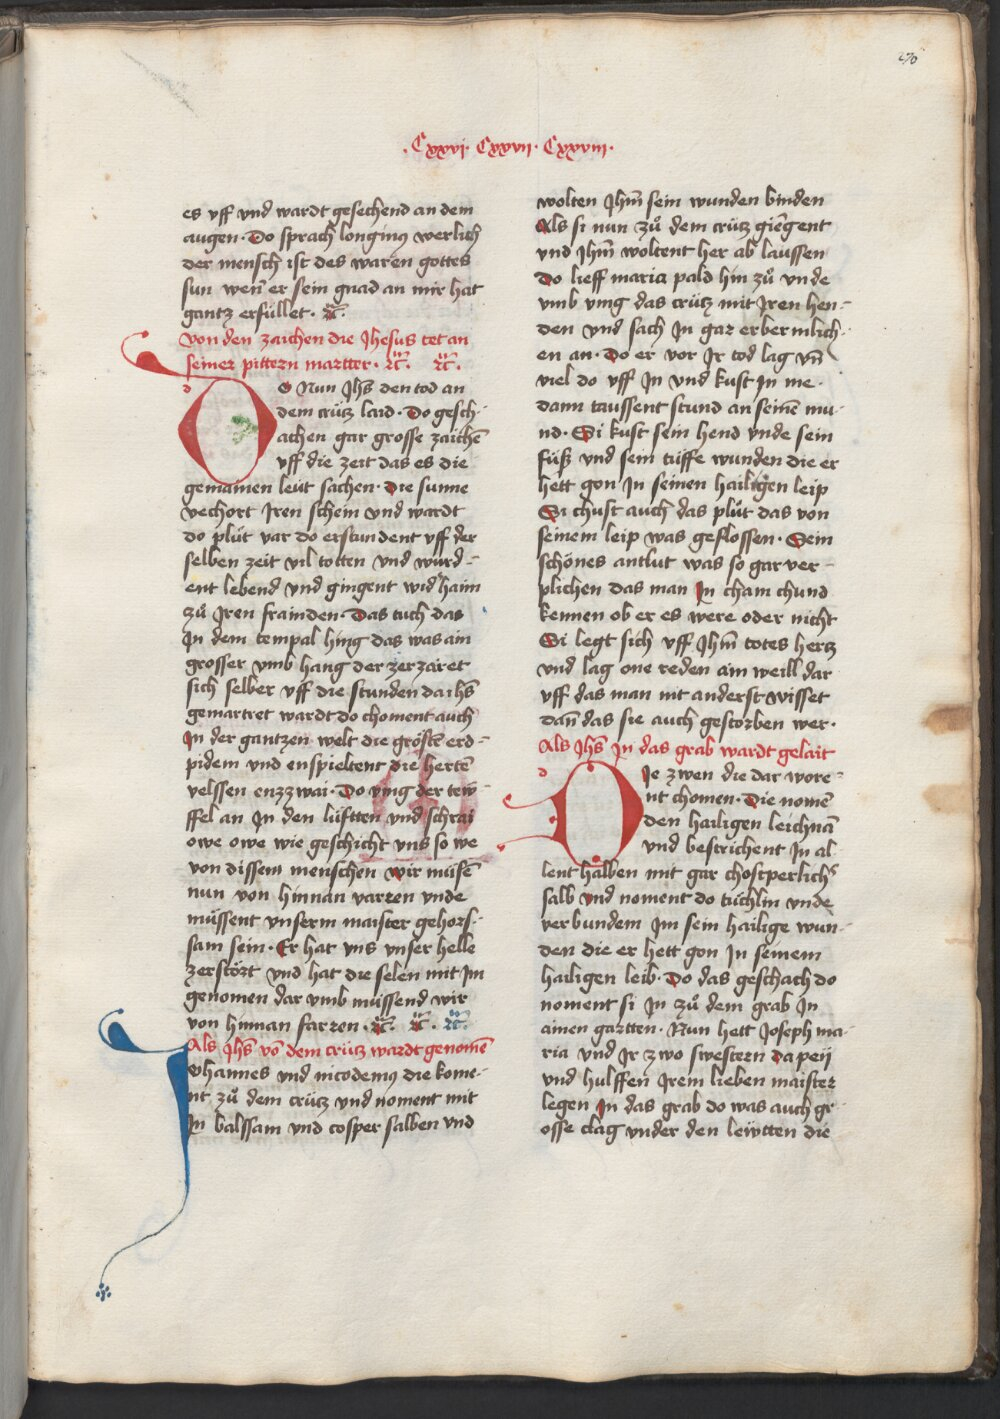 270
· Cxxvj · Cxxvij · Cxxviij ·
es vff vnd wardt gesechend an dem
augen · Do sprach longinꝯ werlich
der mensch ist des waren gottes
sun wen̄ er sein gnad an mir hat
gantz erfüllet · ꝛc̄ ·
Von den zaichen die Jhesus tet an
seiner pittern martter · ꝛc̄ · ꝛc̄ ·
DO Nun Jhs̄ den tod an
dem crütz laid · Do gesch-
achen gar grosse zaichē
vff die zeit das es die
gemainen leüt sachen · Die sunne
verchort Iren schein vnd wardt
do plůt var do erstundent vff der
selben zeit vil totten vnd wurd-
ent lebend vnd gingent wid' haim
zů Iren frainden · Das tuch das
In dem tempal hing das was ain
grosser vmb hang der zerzaret
sich selber vff die stunden da ihs̄
gemartret wardt do choment auch
In der gantzen welt die gröstē erd-
pidem vnd enspieltent die hertē
velssen enzzwai · Do ving der tew-
ffel an In den lüftten vnd schrai
owe owe wie geschicht vns so we
von dissem menschen wir müsē
nun von hinnan varren vnde
müssent vnserm maister gehors-
sam sein · Er hat vns vnser helle
zerstözt vnd hat die selen mit Im
genomen dar vmb müssend wir
von hinnan farren · ꝛc̄ · ꝛc̄ · ꝛc̄ ·
Als Jhs̄ vō dem crütz wardt genomē
Johannes vnd nicodemꝯ die kome-
nt zů dem crütz vnd noment mit
In balssam vnd cosper salben vnd
wolten Jhm̄ sein wunden binden
Als si nun zů dem crütz giengent
vnd Jhm̄ woltent her ab laussen
Do lieff maria pald hin zů vnde
vmb ving das crütz mit Iren hen-
den vnd sach In gar erbermlich-
en an · Do er vor Ir tod lag vn̄
viel do vff In vnd kust In me
dann taussent stund an seinē mu-
nd · Si kust sein hend vnde sein
füß vnd sein tüffe wunden die er
hett gon In seinen hailigen leip
Si chust auch das plůt das von
seinem leip was geflossen · Sein
schönes antlut was so gar ver-
plichen das man In cham chund
kennen ob er es were oder nicht
Si legt sich vff Jhm̄ totes hertz
vnd lag one reden ain weill dar
vff das man nit anderst wisset
dan̄ das sie auch gestorben wer ·
Als Jhs̄ In das grab wardt gelait
Die zwen die dar wore-
nt chomen · Die nomē
den hailigen leichnā
vnd bestrichent In al-
lent halben mit gar chostperlich'
salb vnd noment do tüchlin vnde
verbundem Im sein hailige wun-
den die er hett gon In seinem
hailigen leib · Do das geschach do
noment si In zů dem grab In
ainen gartten · Nun hett Joseph ma-
ria vnd Ir zwo swestern da peÿ
vnd hulffen Irem lieben maister
legen In das grab do was auch gr-
osse clag vnder den lewtten die